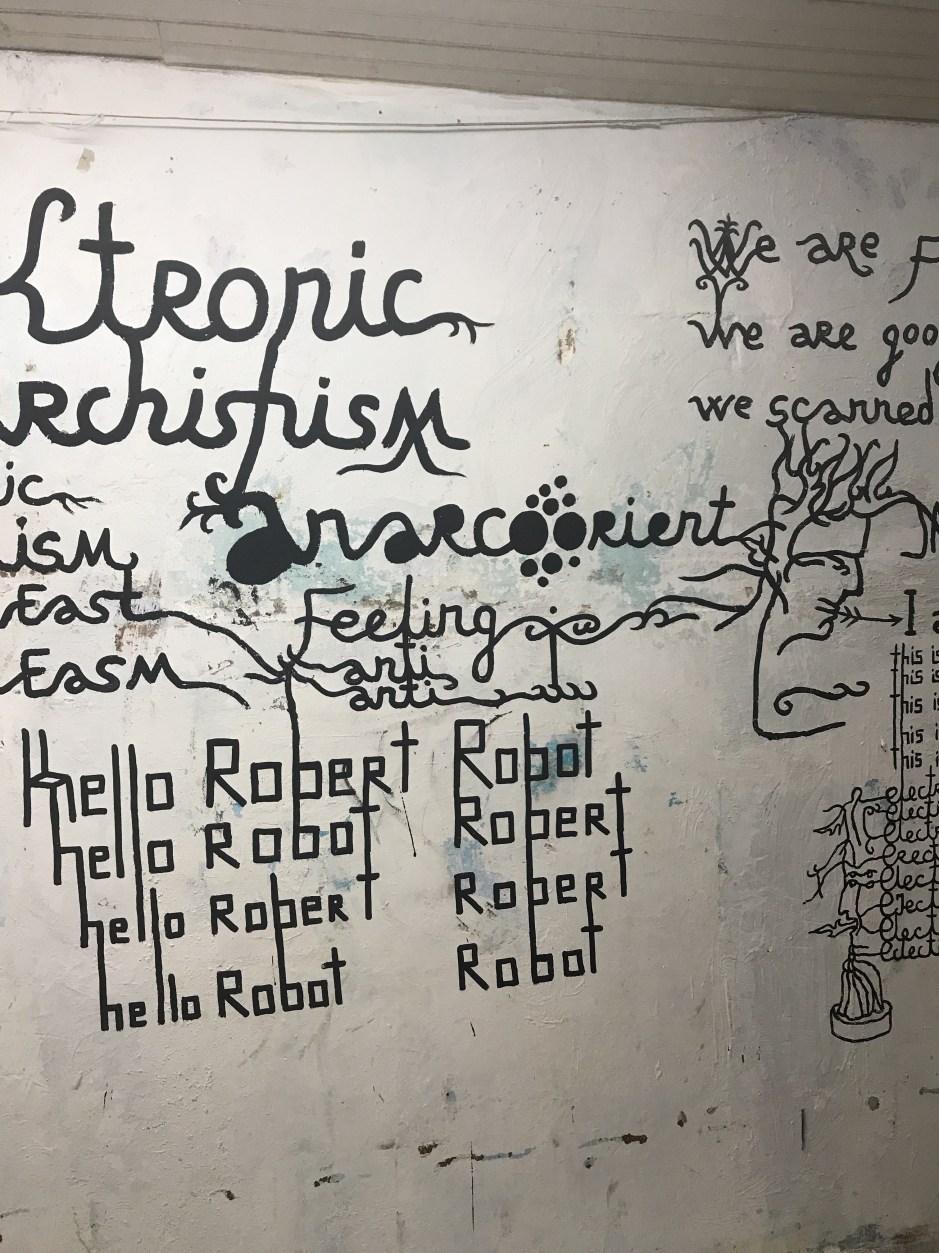 tronic
archisnism
ic
ism
East
Easm
anarcoorient
Feeling
anti
anti
hello Robert
hello Robot
hello Robert
hello Robot
Robot
Robert
Robert
Robot
We are F
we are goo
we scarred
I a
this is
this is
this is
this is
this is
elect
elect
elect
elect
elect
elect
elect
elect